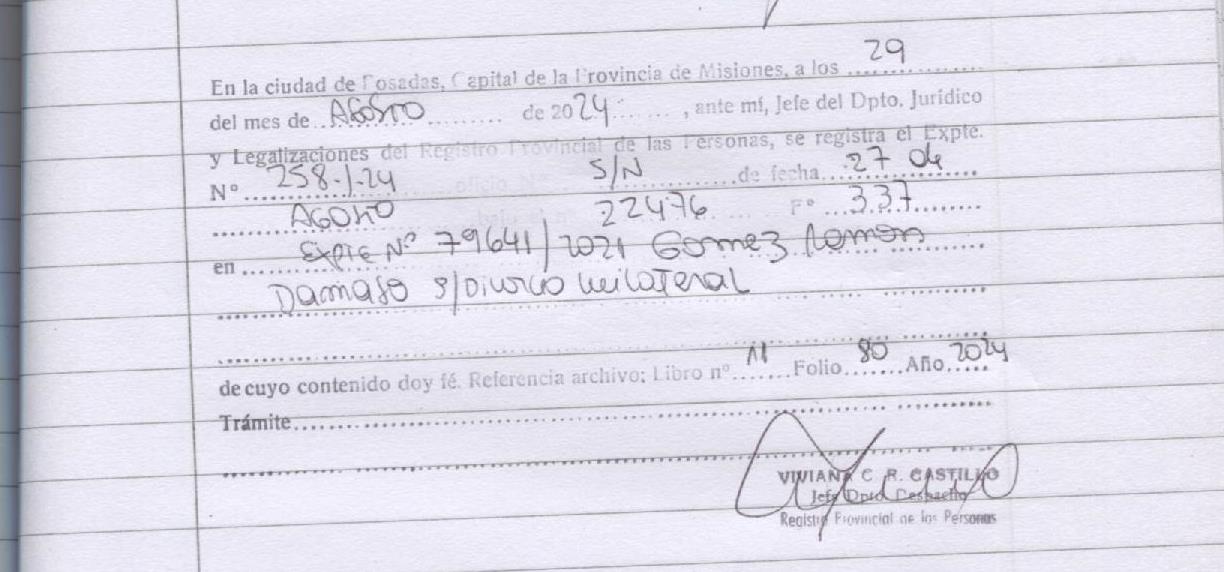 En la ciudad de Posadas, Capital de la Provincia de Misiones, a los 29
del mes de AGOSTO de 2024, ante mí, Jefe del Dpto. Jurídico
y Legalizaciones del Registro Provincial de las Personas, se registra el Expte.
Nº 258-1-24 oficio Nº S/N de fecha 27 de
AGOSTO 22476 Fº 337
en Expte Nº 79641/2021 Gomez Ramon
Damaso s/Divorcio unilateral
de cuyo contenido doy fé. Referencia archivo: Libro nº 11 Folio 80 Año 2024
Trámite
VIVIANA C. R. CASTILLO
Jefe Dpto Despacho
Registro Provincial de las Personas